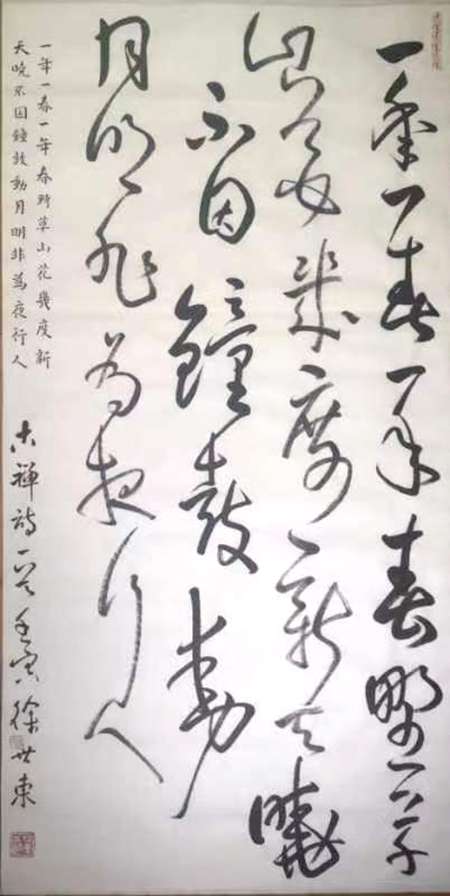 一年一春一年春野草
山花幾度新天曉
不因鐘鼓動
月明非為夜行人
一年一春一年春野草山花幾度新
天曉不因鐘鼓動月明非為夜行人
古禪詩一首壬寅徐世東